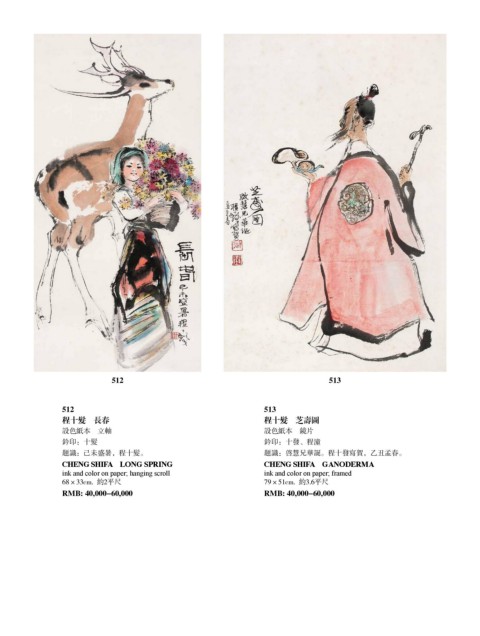 長春
己未盛暑程十髮
芝壽圖
啟慧兄華誕
程十發寫賀
乙丑孟春
512
513
512
程十髮　長春
設色紙本　立軸
鈐印：十髮
題識：己未盛暑，程十髮。
CHENG SHIFA　LONG SPRING
ink and color on paper; hanging scroll
68 × 33cm.　約2平尺
RMB: 40,000–60,000
513
程十髮　芝壽圖
設色紙本　鏡片
鈐印：十發、程潼
題識：啓慧兄華誕。程十發寫賀，乙丑孟春。
CHENG SHIFA　GANODERMA
ink and color on paper; framed
79 × 51cm.　約3.6平尺
RMB: 40,000–60,000